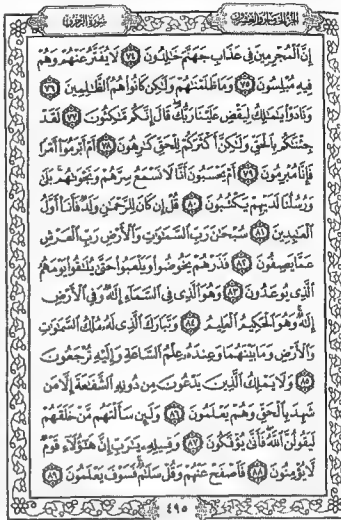 الجزء الخامس والعشرون
سورة الزخرف
إِنَّ الْمُجْرِمِينَ فِي عَذَابِ جَهَنَّمَ خَالِدُونَ ٧٤ لَا يُفَتَّرُ عَنْهُمْ وَهُمْ
فِيهِ مُبْلِسُونَ ٧٥ وَمَا ظَلَمْنَاهُمْ وَلَٰكِن كَانُوا هُمُ الظَّالِمِينَ ٧٦
وَنَادَوْا يَا مَالِكُ لِيَقْضِ عَلَيْنَا رَبُّكَ قَالَ إِنَّكُم مَّاكِثُونَ ٧٧ لَقَدْ
جِئْنَاكُم بِالْحَقِّ وَلَٰكِنَّ أَكْثَرَكُمْ لِلْحَقِّ كَارِهُونَ ٧٨ أَمْ أَبْرَمُوا أَمْرًا
فَإِنَّا مُبْرِمُونَ ٧٩ أَمْ يَحْسَبُونَ أَنَّا لَا نَسْمَعُ سِرَّهُمْ وَنَجْوَاهُم بَلَىٰ
وَرُسُلُنَا لَدَيْهِمْ يَكْتُبُونَ ٨٠ قُلْ إِن كَانَ لِلرَّحْمَٰنِ وَلَدٌ فَأَنَا أَوَّلُ
الْعَابِدِينَ ٨١ سُبْحَانَ رَبِّ السَّمَاوَاتِ وَالْأَرْضِ رَبِّ الْعَرْشِ
عَمَّا يَصِفُونَ ٨٢ فَذَرْهُمْ يَخُوضُوا وَيَلْعَبُوا حَتَّىٰ يُلَاقُوا يَوْمَهُمُ
الَّذِي يُوعَدُونَ ٨٣ وَهُوَ الَّذِي فِي السَّمَاءِ إِلَٰهٌ وَفِي الْأَرْضِ
إِلَٰهٌ وَهُوَ الْحَكِيمُ الْعَلِيمُ ٨٤ وَتَبَارَكَ الَّذِي لَهُ مُلْكُ السَّمَاوَاتِ
وَالْأَرْضِ وَمَا بَيْنَهُمَا وَعِندَهُ عِلْمُ السَّاعَةِ وَإِلَيْهِ تُرْجَعُونَ
٨٥ وَلَا يَمْلِكُ الَّذِينَ يَدْعُونَ مِن دُونِهِ الشَّفَاعَةَ إِلَّا مَن
شَهِدَ بِالْحَقِّ وَهُمْ يَعْلَمُونَ ٨٦ وَلَئِن سَأَلْتَهُم مَّنْ خَلَقَهُمْ
لَيَقُولُنَّ اللَّهُ فَأَنَّىٰ يُؤْفَكُونَ ٨٧ وَقِيلِهِ يَا رَبِّ إِنَّ هَٰؤُلَاءِ قَوْمٌ
لَّا يُؤْمِنُونَ ٨٨ فَاصْفَحْ عَنْهُمْ وَقُلْ سَلَامٌ فَسَوْفَ يَعْلَمُونَ ٨٩
٤٩٥